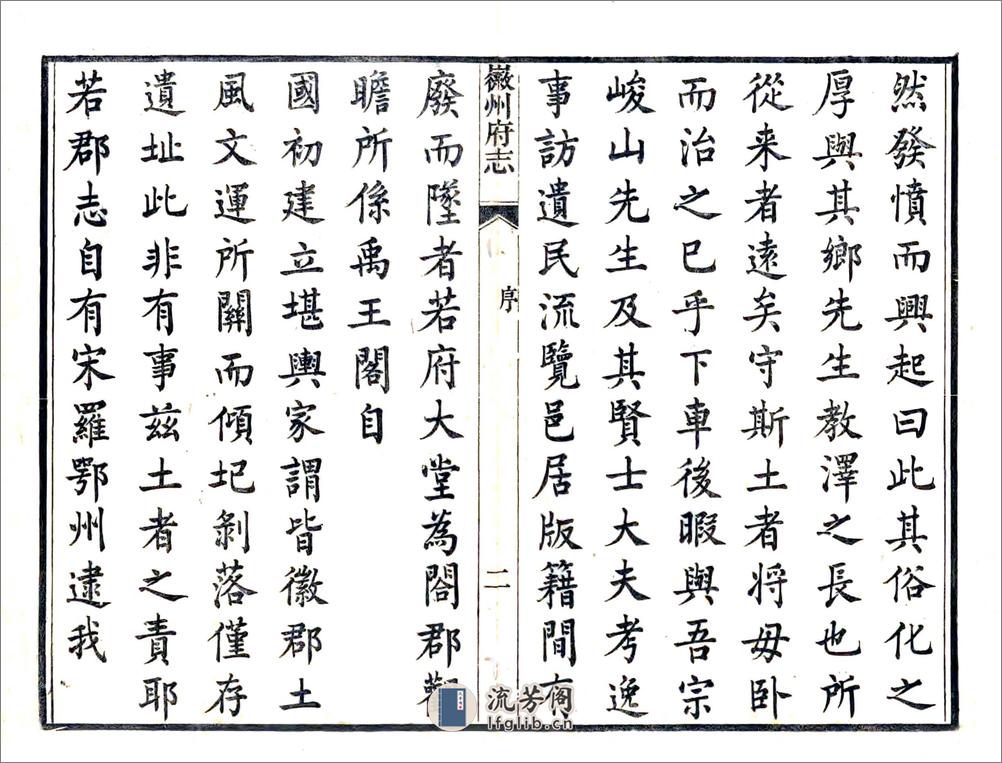 然發憤而興起曰此其俗化之
厚與其鄉先生教澤之長也所
從来者遠矣守斯土者将毋卧
而治之已乎下車後暇與吾宗
峻山先生及其賢士大夫考逸
事訪遺民流覽邑居版籍間有
徽州府志
序
二
廢而墜者若府大堂為閤郡觀
瞻所係禹王閣自
國初建立堪輿家謂皆徽郡土
風文運所關而傾圮剝落僅存
遺址此非有事茲土者之責耶
若郡志自有宋羅鄂州逮我
流芳阁
lfglib.cn